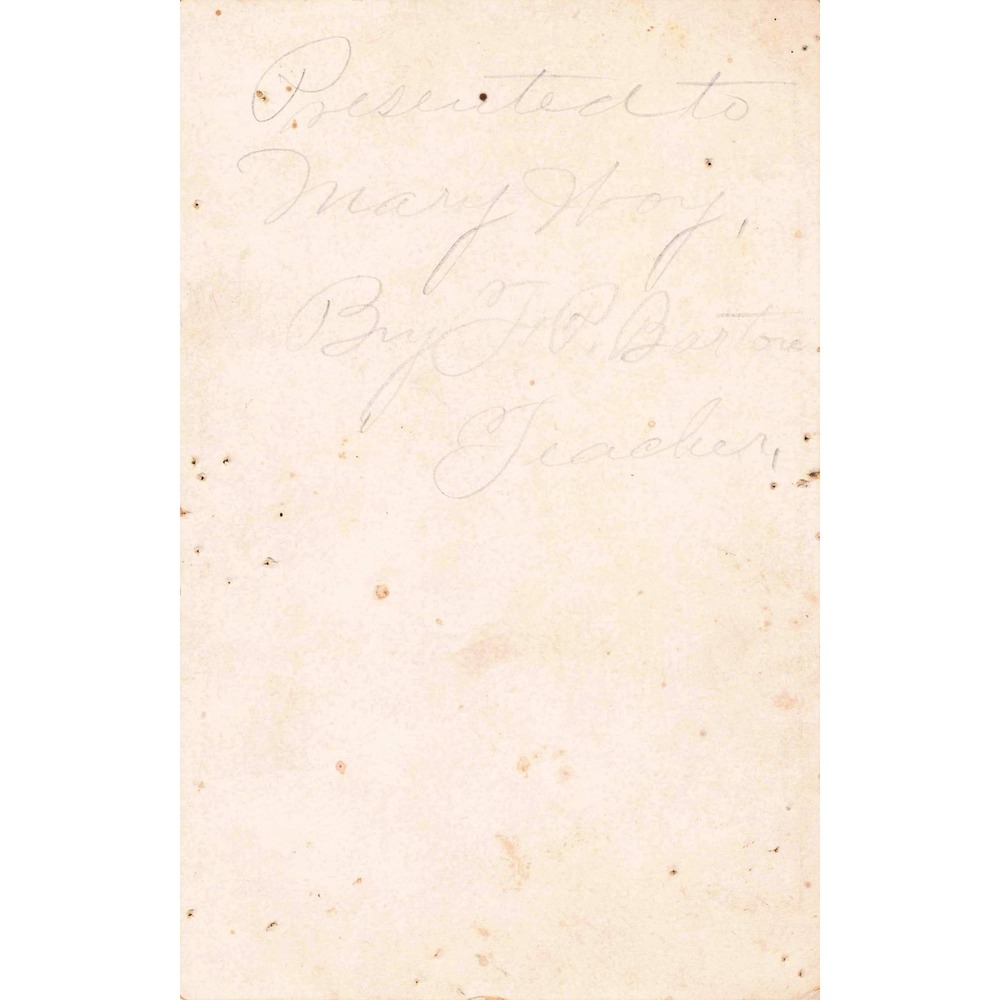 Presented to
Mary Hoy,
By F. P. Barton
Teacher,